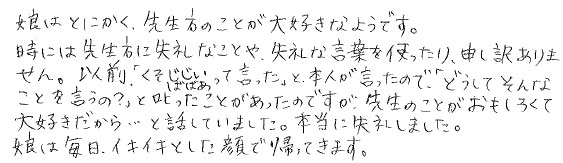 娘はとにかく、先生方のことが大好きなようです。
時には先生方に失礼なことや、失礼な言葉を使ったり、申し訳ありま
せん。以前、「くそじじいばばあって言った」と、本人が言ったので、「どうしてそんな
ことを言うの？」と叱ったことがあったのですが、先生のことがおもしろくて
大好きだから…と話していました。本当に失礼しました。
娘は毎日、イキイキとした顔で帰ってきます。